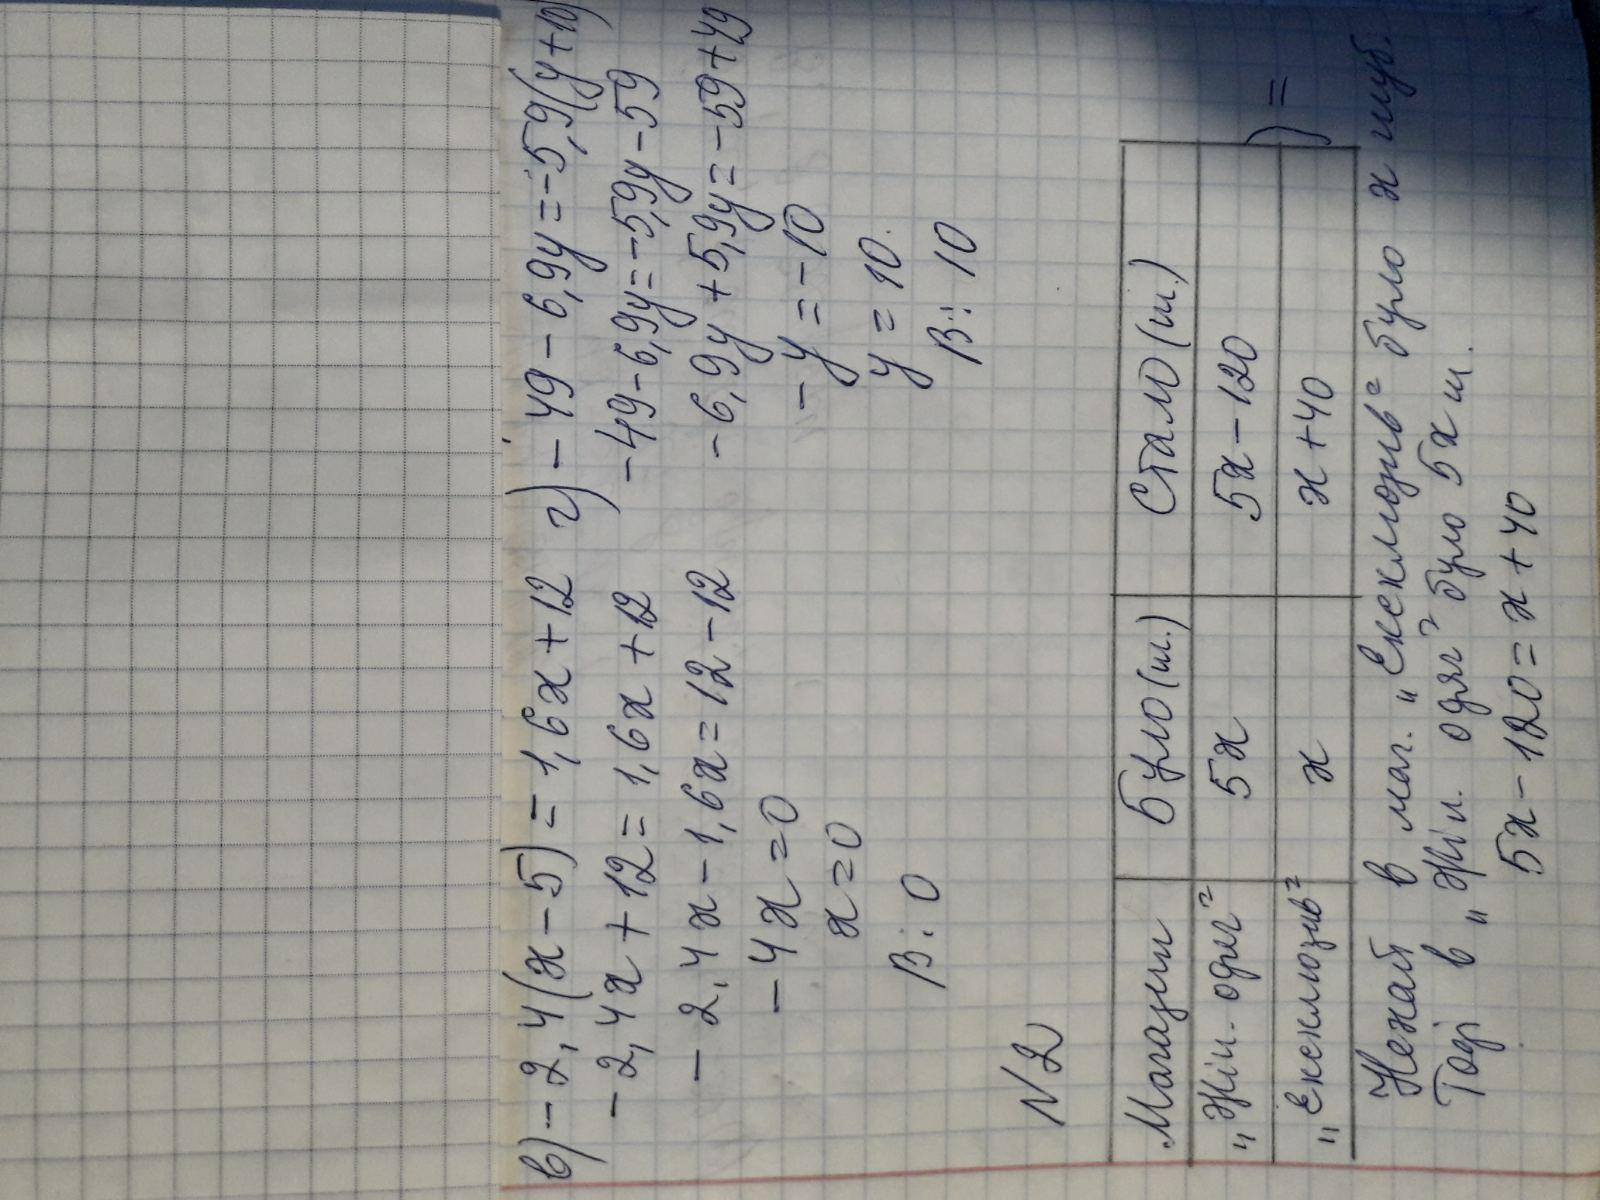 в) -2,4(x-5)=1,6x+12
-2,4x+12=1,6x+12
-2,4x-1,6x=12-12
-4x=0
x=0
В: 0
г) -49-6,9y=-5,9(y+10)
-49-6,9y=-5,9y-59
-6,9y+5,9y=-59+49
-y=-10
y=10.
В: 10
N2
Магазин Було(ш.) Стало(ш.)
„Жін. одяг" 5x 5x-120
„Ексклюзив" x x+40 ) =
Нехай в маг. „Ексклюзив" було x шуб.
Тоді в „Жін. одяг" було 5x ш.
5x-120=x+40